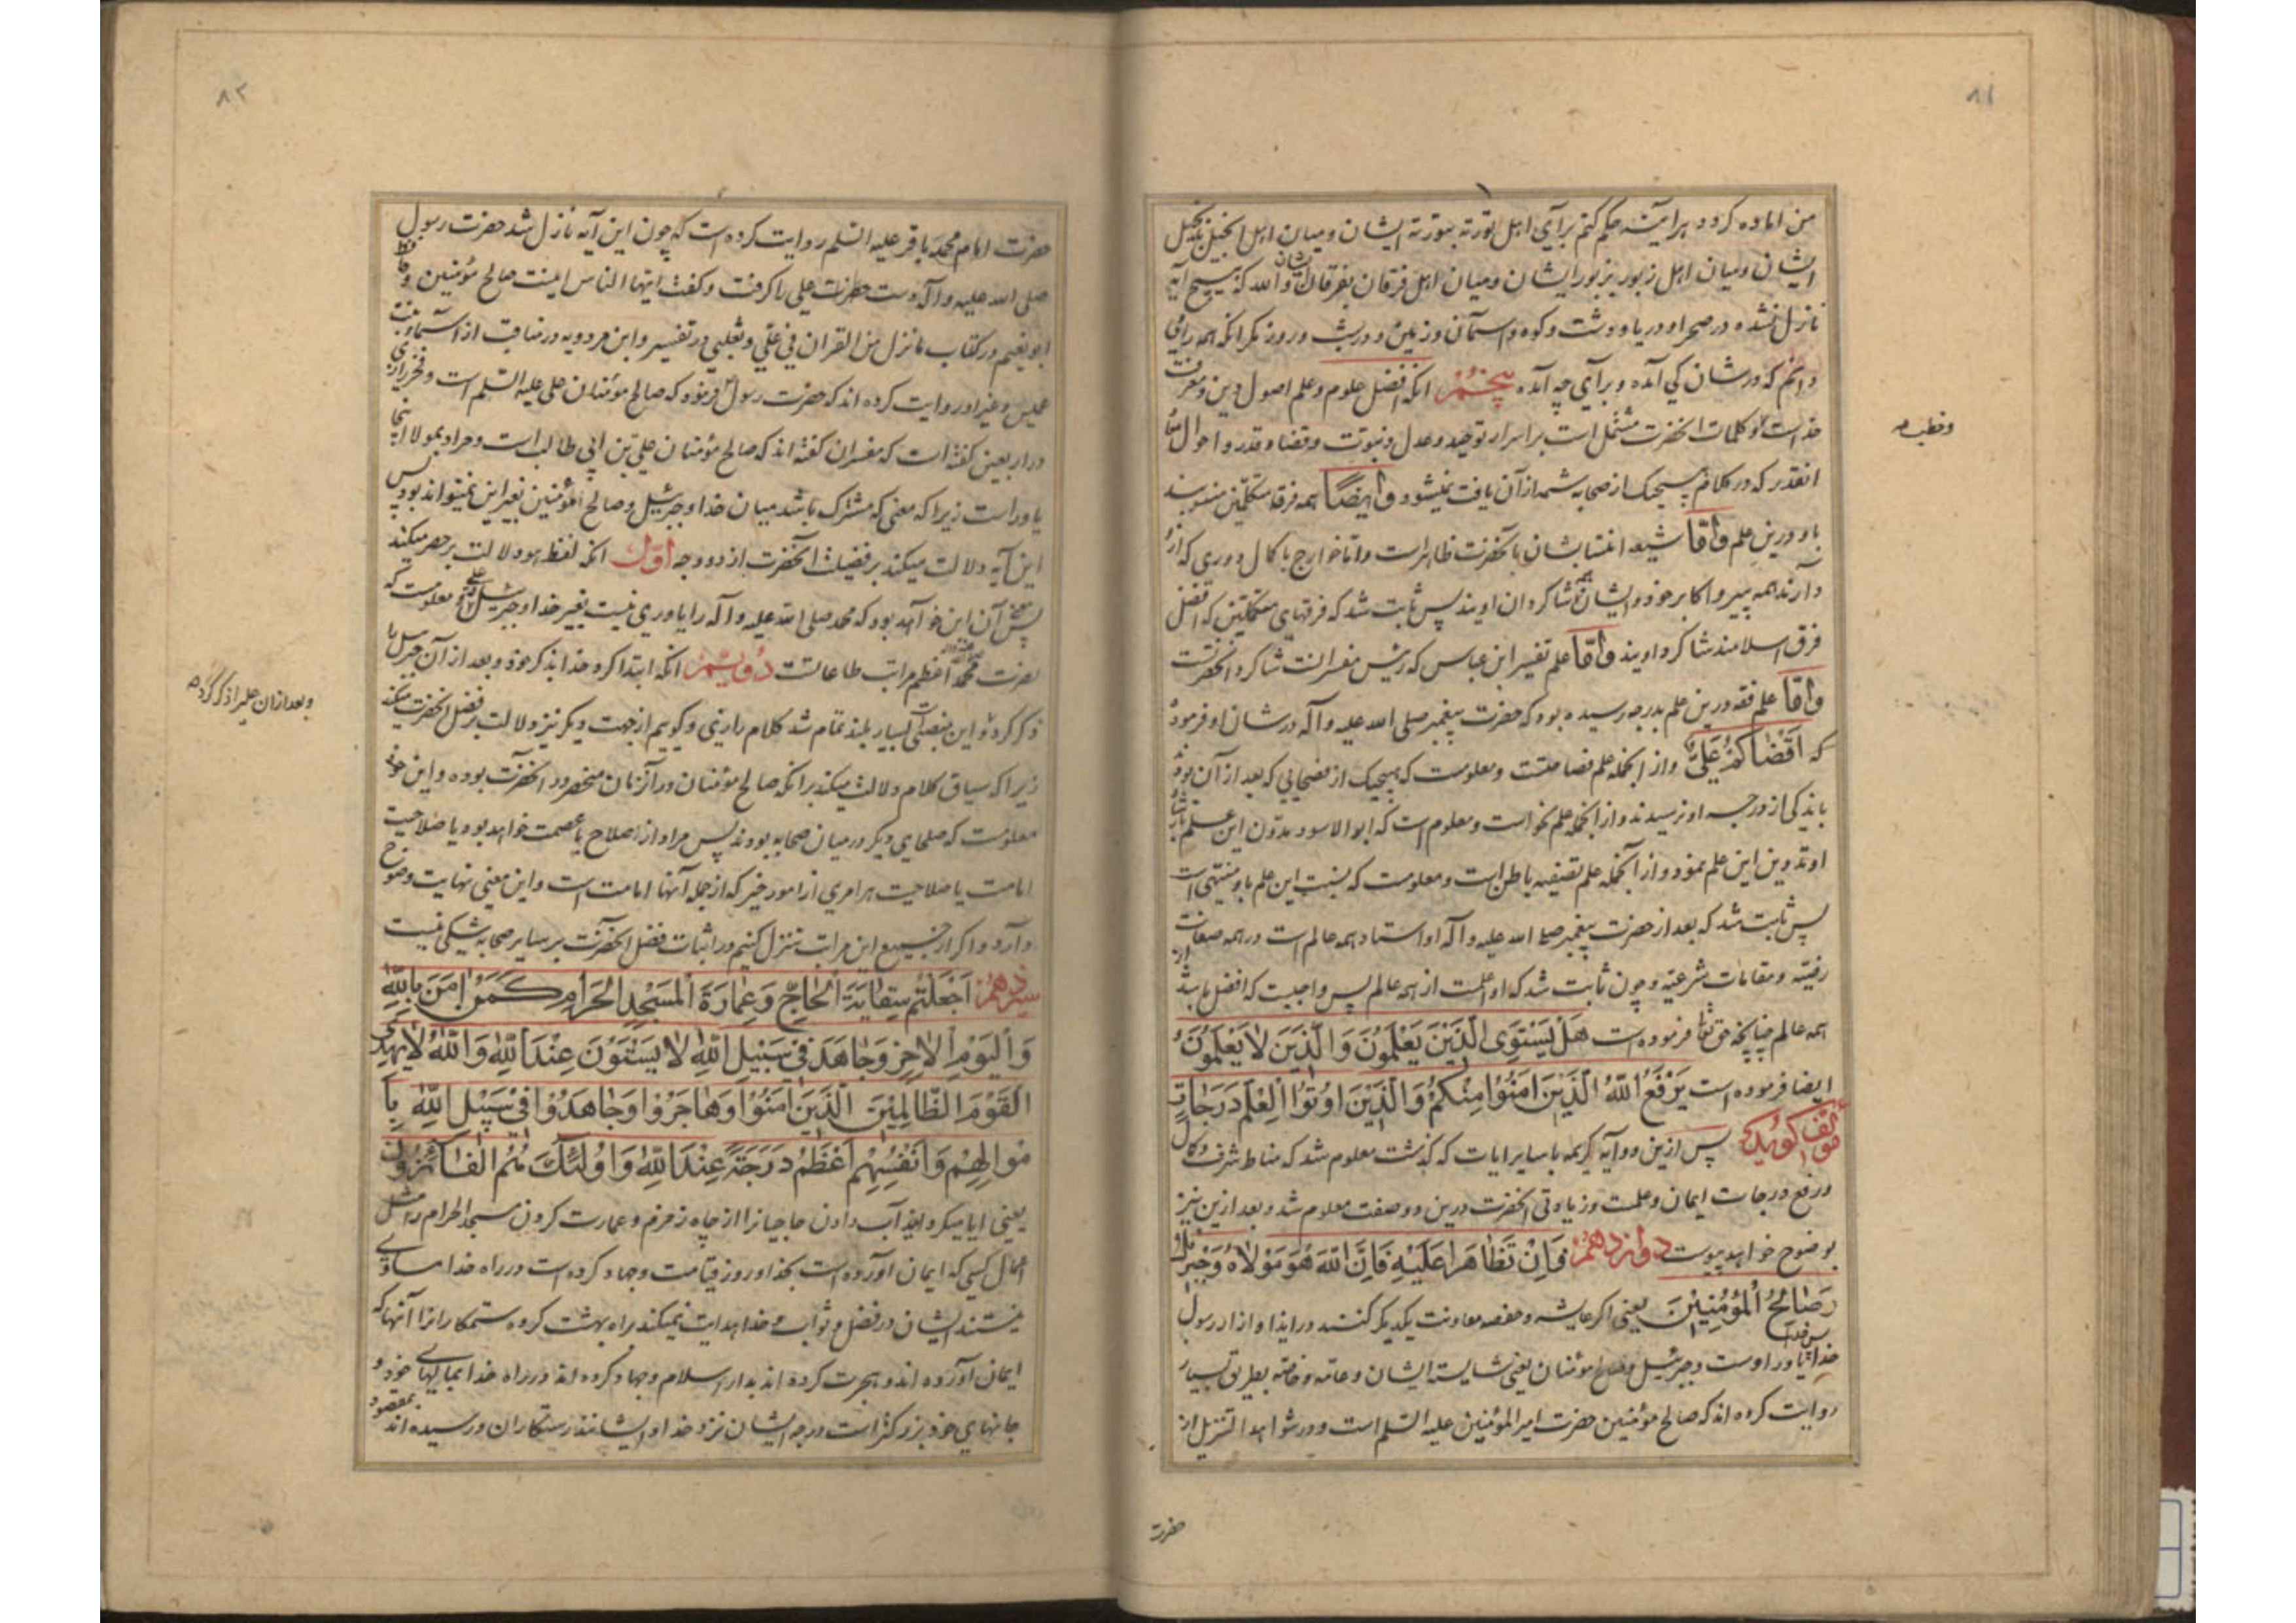 ۸۱
من اماده کرد و هرآینه حکم کنم برای اهل توریة بتوریة ایشان و میان اهل انجیل بانجیل
ایشان و میان اهل زبور بزبور ایشان و میان اهل فرقان بفرقان ایشان و الله که هیچ آیه
نازل نشده در صحرا و دریا و دشت و کوه و آسمان و زمین و در شب و روز مگر انکه همه را من
دانم که در شان کی آمده و برای چه آمده پنجم انکه افضل علوم و علم اصول دین و معرفت
خداست و کلمات انحضرت مشتمل است بر اسرار توحید و عدل و نبوت و قضا و قدر و احوال
وخطب
انقدر که در کلام هیچیک از صحابه شمه از آن یافت نمیشود و ایضاً همه فرق متکلمین منسوبند
باو درین علم و امّا شیعه انتسابشان بانحضرت ظاهر است و اما خوارج با کمال دوری که ازو
دارند همه پیرو اکابر خود و ایشان شاکردان اویند پس ثابت شد که فرقهای متکلمین که افضل
فرق اسلامند شاکرد اویند و امّا علم تفسیر ابن عباس که رئیس مفسرانست شاکرد انحضرتست
و امّا علم فقه درین علم بدرجه رسیده بود که حضرت پیغمبر صلی الله علیه و آله در شان او فرمود
که اَقْضٰاکُمْ عَلِیٌّ و از انجمله علم فصاحتست و معلومست که هیچیک از فصحایی که بعد از آن بودند
باندکی از درجه او نرسیدند و از انجمله علم نحو است و معلوم است که ابو الاسود بدون این علم
او تدوین این علم نمود و از انجمله علم تصفیه باطن است و معلومست که نسبت این علم باو منتهی است
پس ثابت شد که بعد از حضرت پیغمبر صلی الله علیه و آله او استاد همه عالم است در همه صفات
رفیعه و مقامات شرعیه و چون ثابت شد که او اعلمست از همه عالم پس واجبست که افضل باشد از
همه عالم چنانچه حق تعا فرموده است هَلْ یَسْتَوِی الَّذِینَ یَعْلَمُونَ وَ الَّذِینَ لٰا یَعْلَمُونَ
ایضا فرموده است یَرْفَعُ اللّٰهُ الَّذِینَ اٰمَنُوا مِنْکُمْ وَ الَّذِینَ اُوتُوا الْعِلْمَ دَرَجٰاتٍ
مؤلف کوید که پس ازین دو آیه کریمه با سایر ایات که گذشت معلوم شد که مناط شرف و کمال
و رفع درجات ایمان و علمست و زیادتی انحضرت درین دو صفت معلوم شد و بعد ازین نیز
بوضوح خواهد پیوست دوازدهم فَاِنْ تَظٰاهَرٰا عَلَیْهِ فَاِنَّ اللّٰهَ هُوَ مَوْلٰاهُ وَ جِبْرِیلُ
وَ صٰالِحُ الْمُؤْمِنِینَ یعنی اکر عایشه و حفصه معاونت یکدیکر کنند در ایذا و ازار رسول
خدا یاور اوست و جبرئیل و صالح مؤمنان یعنی شایسته ایشان و عامه و خاصه بطریق بسیار
روایت کرده اند که صالح مؤمنین حضرت امیر المؤمنین علیه السلم است و در شواهد التنزیل از
حضرت
۸۲
حضرت امام محمد باقر علیه السلم روایت کرده است که چون این آیه نازل شد حضرت رسول
صلی الله علیه و آله دست حضرت علی را کرفت و کفت ایها الناس اینست صالح مؤمنین و حافظ
ابو نعیم در کتاب ما نزل من القران فی علی و ثعلبی در تفسیر و ابن مردویه در مناقب از اسماء بنت
عمیس و غیر او روایت کرده اند که حضرت رسول فرمود که صالح مؤمنان علی علیه السلم است و فخر رازی
در اربعین کفته است که مفسران کفته اند که صالح مؤمنان علی بن ابی طالب است و مراد بمولا اینجا
یاور است زیرا که معنی که مشترک باشد میان خدا و جبرئیل و صالح المؤمنین بغیر این نمیتواند بود پس
این آیه دلالت میکند بر فضیلت انحضرت از دو وجه اوّل انکه لفظ هو دلالت بر حصر میکند
پس معنی آن این خواهد بود که محمد صلی الله علیه و آله را یاوری نیست بغیر خدا و جبرئیل و علی و معلومست که
نصرت محمد اعظم مراتب طاعاتست دویّم انکه ابتدا کرد خدا بذکر خود و بعد از آن جبرئیل را
وبعد ازان علیرا ذکر کرده
ذکر کرد و این منصبی بسیار بلند تمام شد کلام رازی و کوییم از جهت دیگر نیز دلالت بر فضل انحضرت میکند
زیرا که سیاق کلام دلالت میکند بر انکه صالح مؤمنان در آنزمان منحصر در انحضرت بوده و این خود
معلومست که صلحای دیگر در میان صحابه بودند پس مراد از صلاح یا عصمت خواهد بود یا صلاحیت
امامت یا صلاحیت هر امری از امور خیر که از جمله آنها امامت است و این معنی نهایت وضوح
دارد و اکر از جمیع این مراتب تنزل کنیم در اثبات فضل انحضرت بر سایر صحابه شکی نیست
سیزدهم اَجَعَلْتُمْ سِقٰایَةَ الْحٰاجِّ وَ عِمٰارَةَ الْمَسْجِدِ الْحَرٰامِ کَمَنْ اٰمَنَ بِاللّٰهِ
وَ الْیَوْمِ الْاٰخِرِ وَ جٰاهَدَ فِی سَبِیلِ اللّٰهِ لٰا یَسْتَوُونَ عِنْدَ اللّٰهِ وَ اللّٰهُ لٰا یَهْدِی
الْقَوْمَ الظّٰالِمِینَ الَّذِینَ اٰمَنُوا وَ هٰاجَرُوا وَ جٰاهَدُوا فِی سَبِیلِ اللّٰهِ بِاَ
مْوٰالِهِمْ وَ اَنْفُسِهِمْ اَعْظَمُ دَرَجَةً عِنْدَ اللّٰهِ وَ اُولٰئِکَ هُمُ الْفٰائِزُونَ
یعنی ایا میکردانید آب دادن حاجیانرا از چاه زمزم و عمارت کردن مسجد الحرام را مثل
اعمال کسی که ایمان آورده است بخدا و روز قیامت و جهاد کرده است در راه خدا مساوی
نیستند ایشان در فضل و ثواب و خدا هدایت نمیکند براه بهشت کروه ستمکارانرا آنها که
ایمان آورده اند و هجرت کرده اند بدار اسلام و جهاد کرده اند در راه خدا بمالهای خود و
جانهای خود بزرکتر است درجه ایشان نزد خدا و ایشانند رستکاران و رسیده اند بمقصود